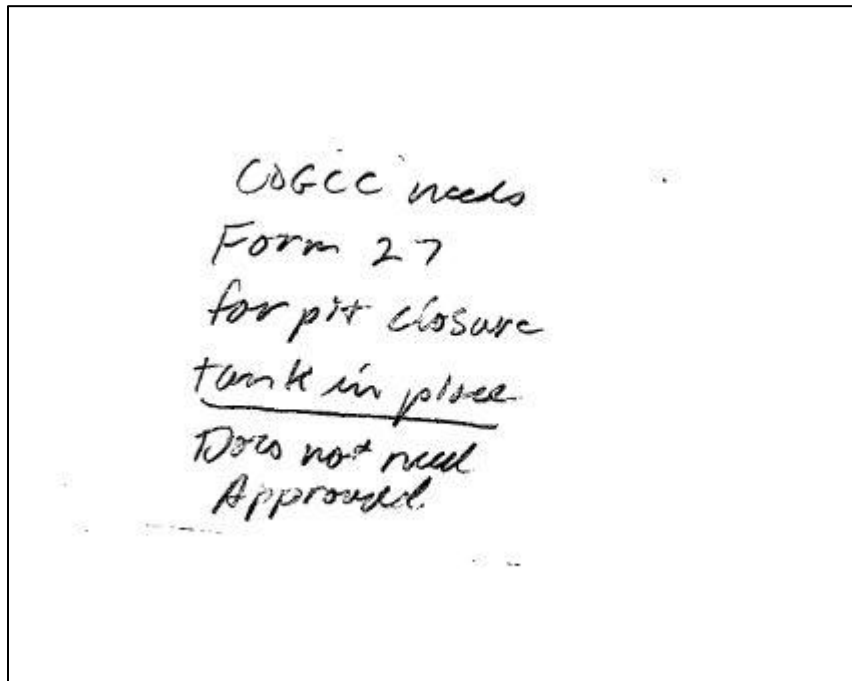 COGCC needs
Form 27
for pit closure
tank in place
Does not need
Approved.